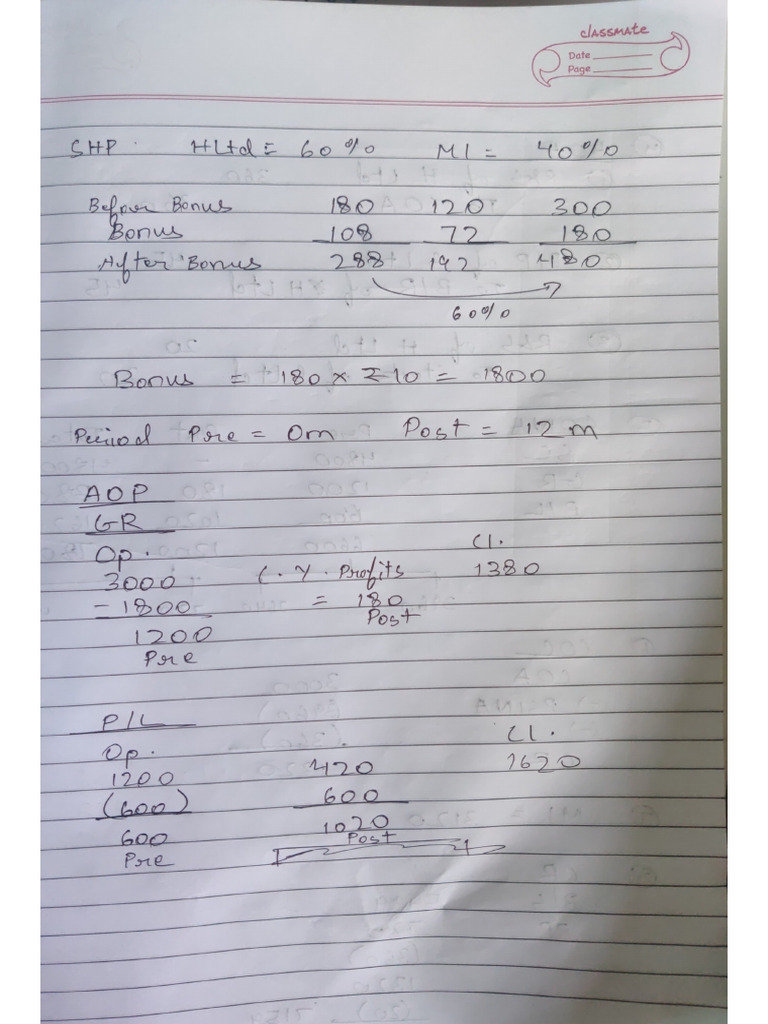 classmate
Date
Page
SHP. HLtd = 60% MI = 40%
Before Bonus 180 120 300
Bonus 108 72 180
After Bonus 288 192 480
60%
Bonus = 180 × ₹10 = 1800
Period Pre = 0m Post = 12m
AOP
GR
Op. Cl.
3000 C.Y. Profits 1380
-1800 = 180
1200 Post
Pre
P/L
Op. Cl.
1200 420 1620
(600) 600
600 1020
Pre Post